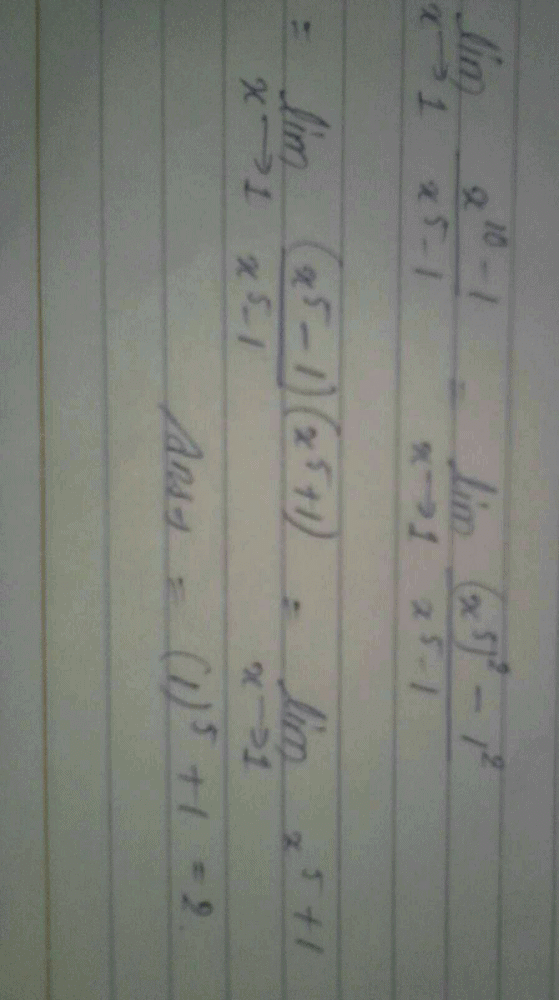 lim x→1 x^10 - 1 / x^5 - 1 = lim x→1 (x^5)^2 - 1^2 / x^5 - 1
= lim x→1 (x^5 - 1)(x^5 + 1) / x^5 - 1 = lim x→1 x^5 + 1
Ans → = (1)^5 + 1 = 2.